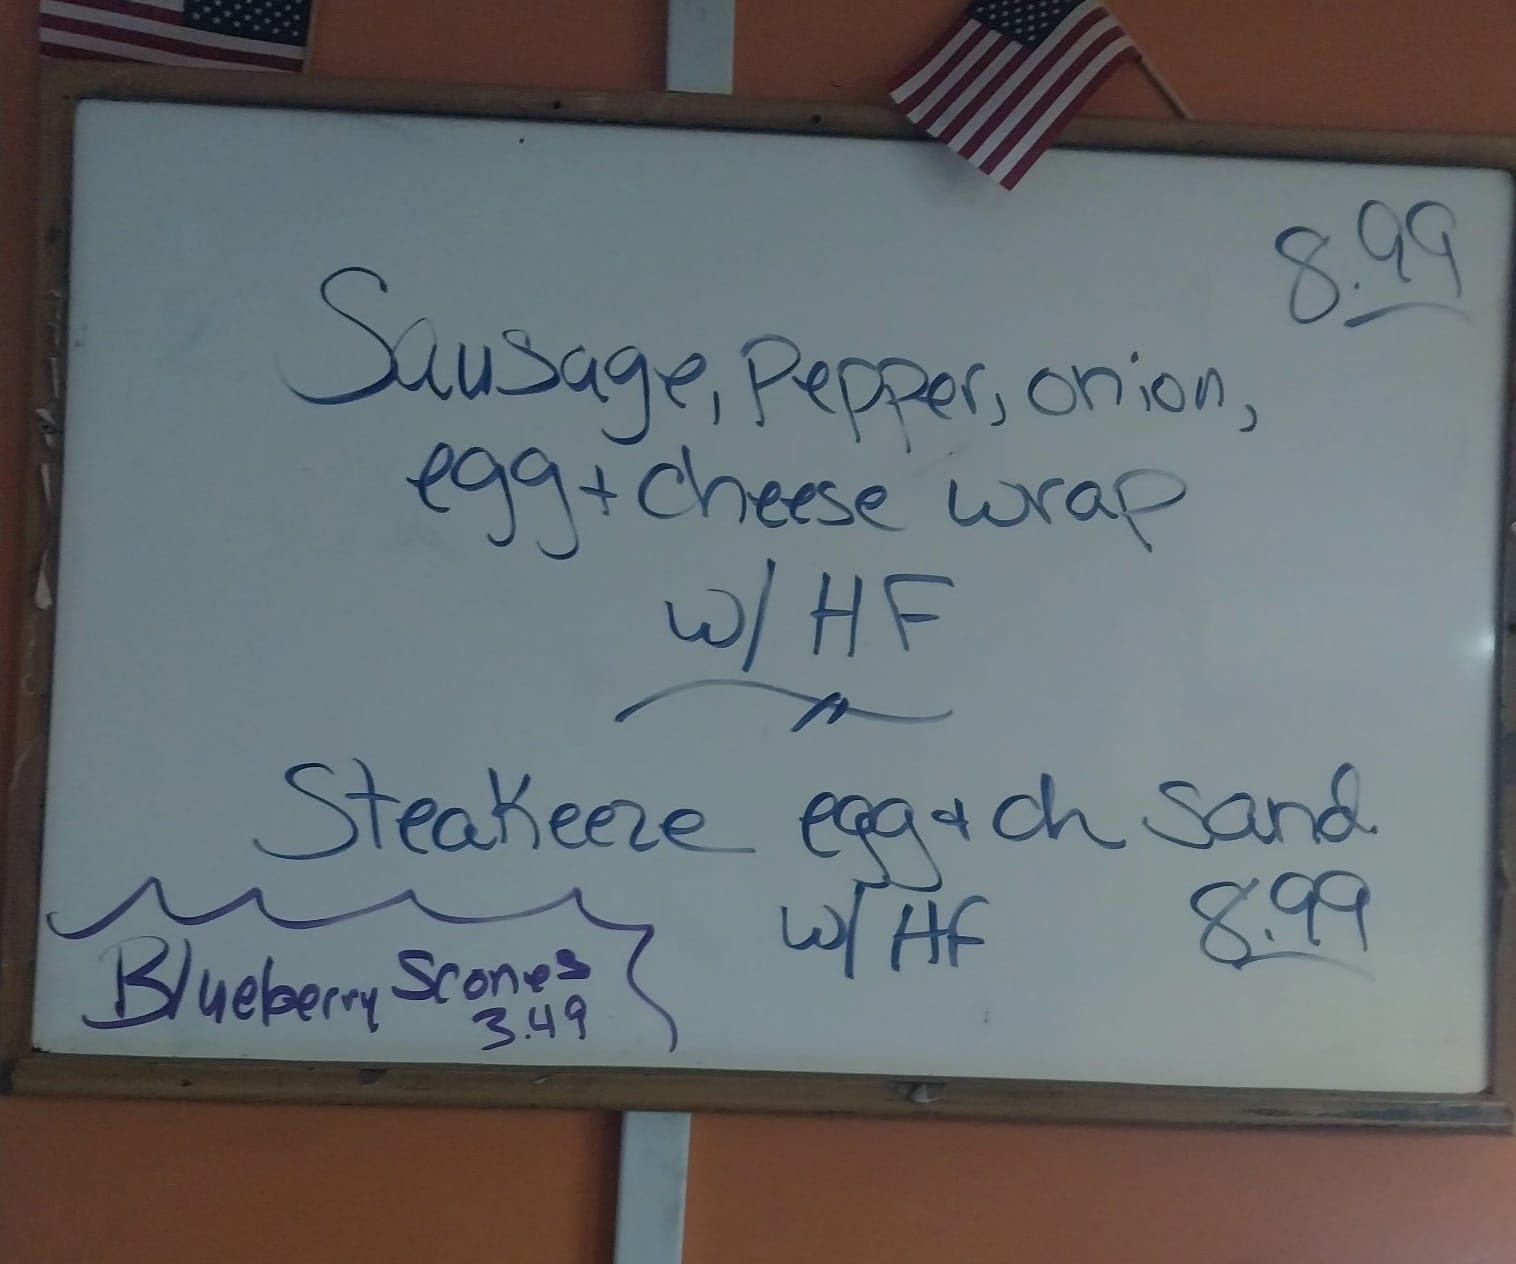 8.99
Sausage, Pepper, onion,
egg + cheese wrap
w/ HF
SteaKeeze egg + ch Sand
w/ HF 8.99
Blueberry Scones
3.49